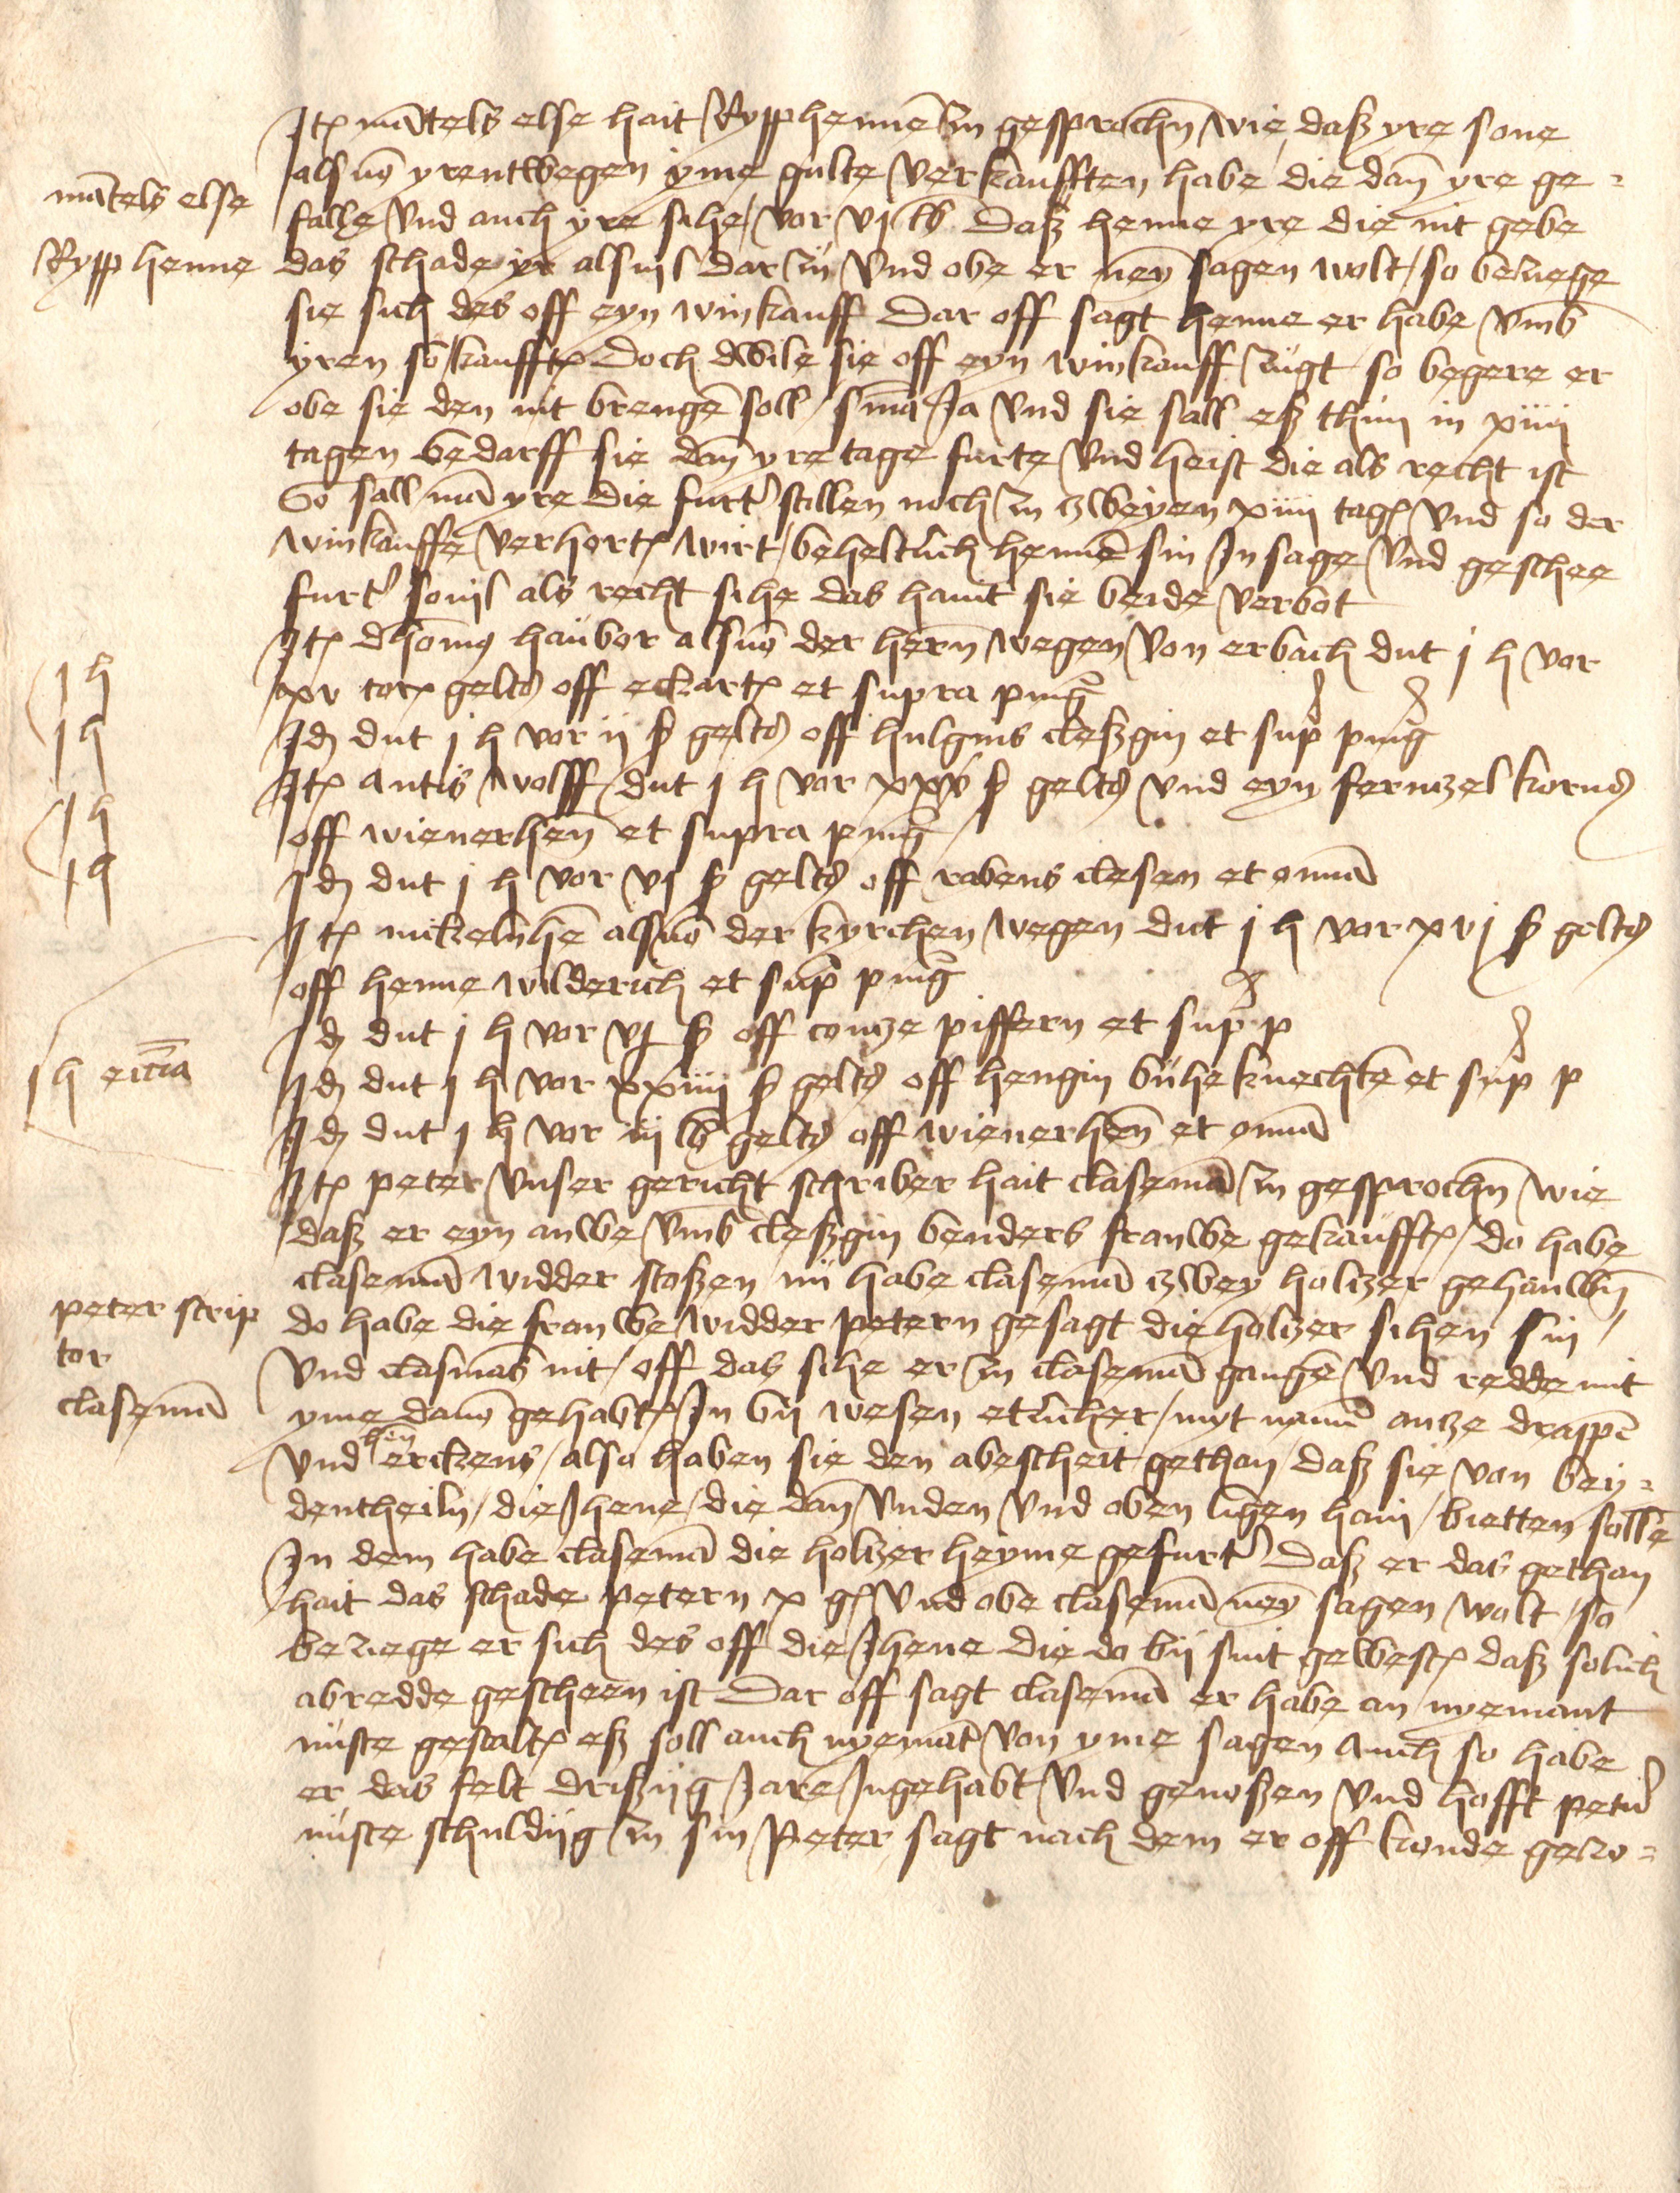 Itē mātels else hait Rypp hennē zu gesprochn̄ wie daß yre sone
als vō yrent wegen yme gulte verkaufften habe die dan̄ yre ge=
falle vnd auch yre sihe / vor vj lb Daß henne yre die nit gebe
das schade yr als vil dar zu Vnd obe er neyn sagen wolt / so beziege
sie sich des off eyn winkauff Dar off sagt henne er habe vmb
yren son kaufft Doch dwile sie off eyn winkauff zugt so begere er
obe sie den nit brengē soll / s ma Ja vnd sie sall eß thun in xiiii
tagen bedarff sie dan̄ yre tage furte vnd heist die als recht ist
So sall mā yre die furt' stellen noch zu zweyen xiiii tagē vnd so der
winkauffe verhort wirt / beheltlich hennē sin Insage vnd geschee
furt' so vil als recht sihe das haint sie beide verbot
mātels else
Rypp henne
Itē dhomꝰ haubor als vō der hern̄ wegen von erbach dut j h vor
xv torꝭ gelts off eckartē et supra pnīg
Idꝫ dut j h vor ij ß gelts off hulgins cleßgin et sup pnīg
Itē Antis wolff dut j h vor xxv ß gelts vnd eyn ferntzel korns
off wienerhen̄ et supra pnīg
Idꝫ dut j h vor vj ß gelts off rabens clesen et omīa
Itē mickelnhē als vō der kyrchen wegen dut j h vor xvj ß gelts
off henne wilderich et sup pnīg
Idꝫ dut j h vor vj ß off contze piffern et sup p
Idꝫ dut j h vor xxiiii ß gelts off hengin buheknechtē et sup p
Idꝫ dut j h vor iij lb gelts off wienerhen̄ et omīa
j h
j h
j h
j h
j h ecc̄ia
Itē peter vnser gericht schriber hait clasemā zu gesprochn̄ wie
daß er eyn anwe vmb cleßgin benders frauwe gekaufft / do habe
clasemā widder stoßen nū habe clasemā zwey holtzer gehauwn̄
do habe die frauwe widder petern gesagt die holtzer sihen sin /
vnd clasmās nit / off das sihe er zu clasemā gangē vnd redde mit
yme davō gehabt / In by wesen etlicher / myt namē antze drappē
vnd hen erckens / also haben sie den abescheit gethan / daß sie von bey=
dentheiln / die Jhene / die dan̄ vnden vnd oben ligen hain / bietten sollē
In dem habe clasemā die holtzer heyme gefurt' Daß er das gethan
hait das schade petern x gl Vnd obe clasemā neyn sagen wolt / so
beziege er sich des off die Jhene die do by sint gewest daß solich
abredde gescheen ist Dar off sagt clasemā er habe an nyemant
nuste gestalt eß soll auch nyemāt von yme sagen Auch so habe
er das felt drißijg Jare Ingehabt vnd genoßen vnd hofft petern
nuste schuldijg zu sin Peter sagt nach dem er off konde gezo=
peter scrip
tor
clasemā